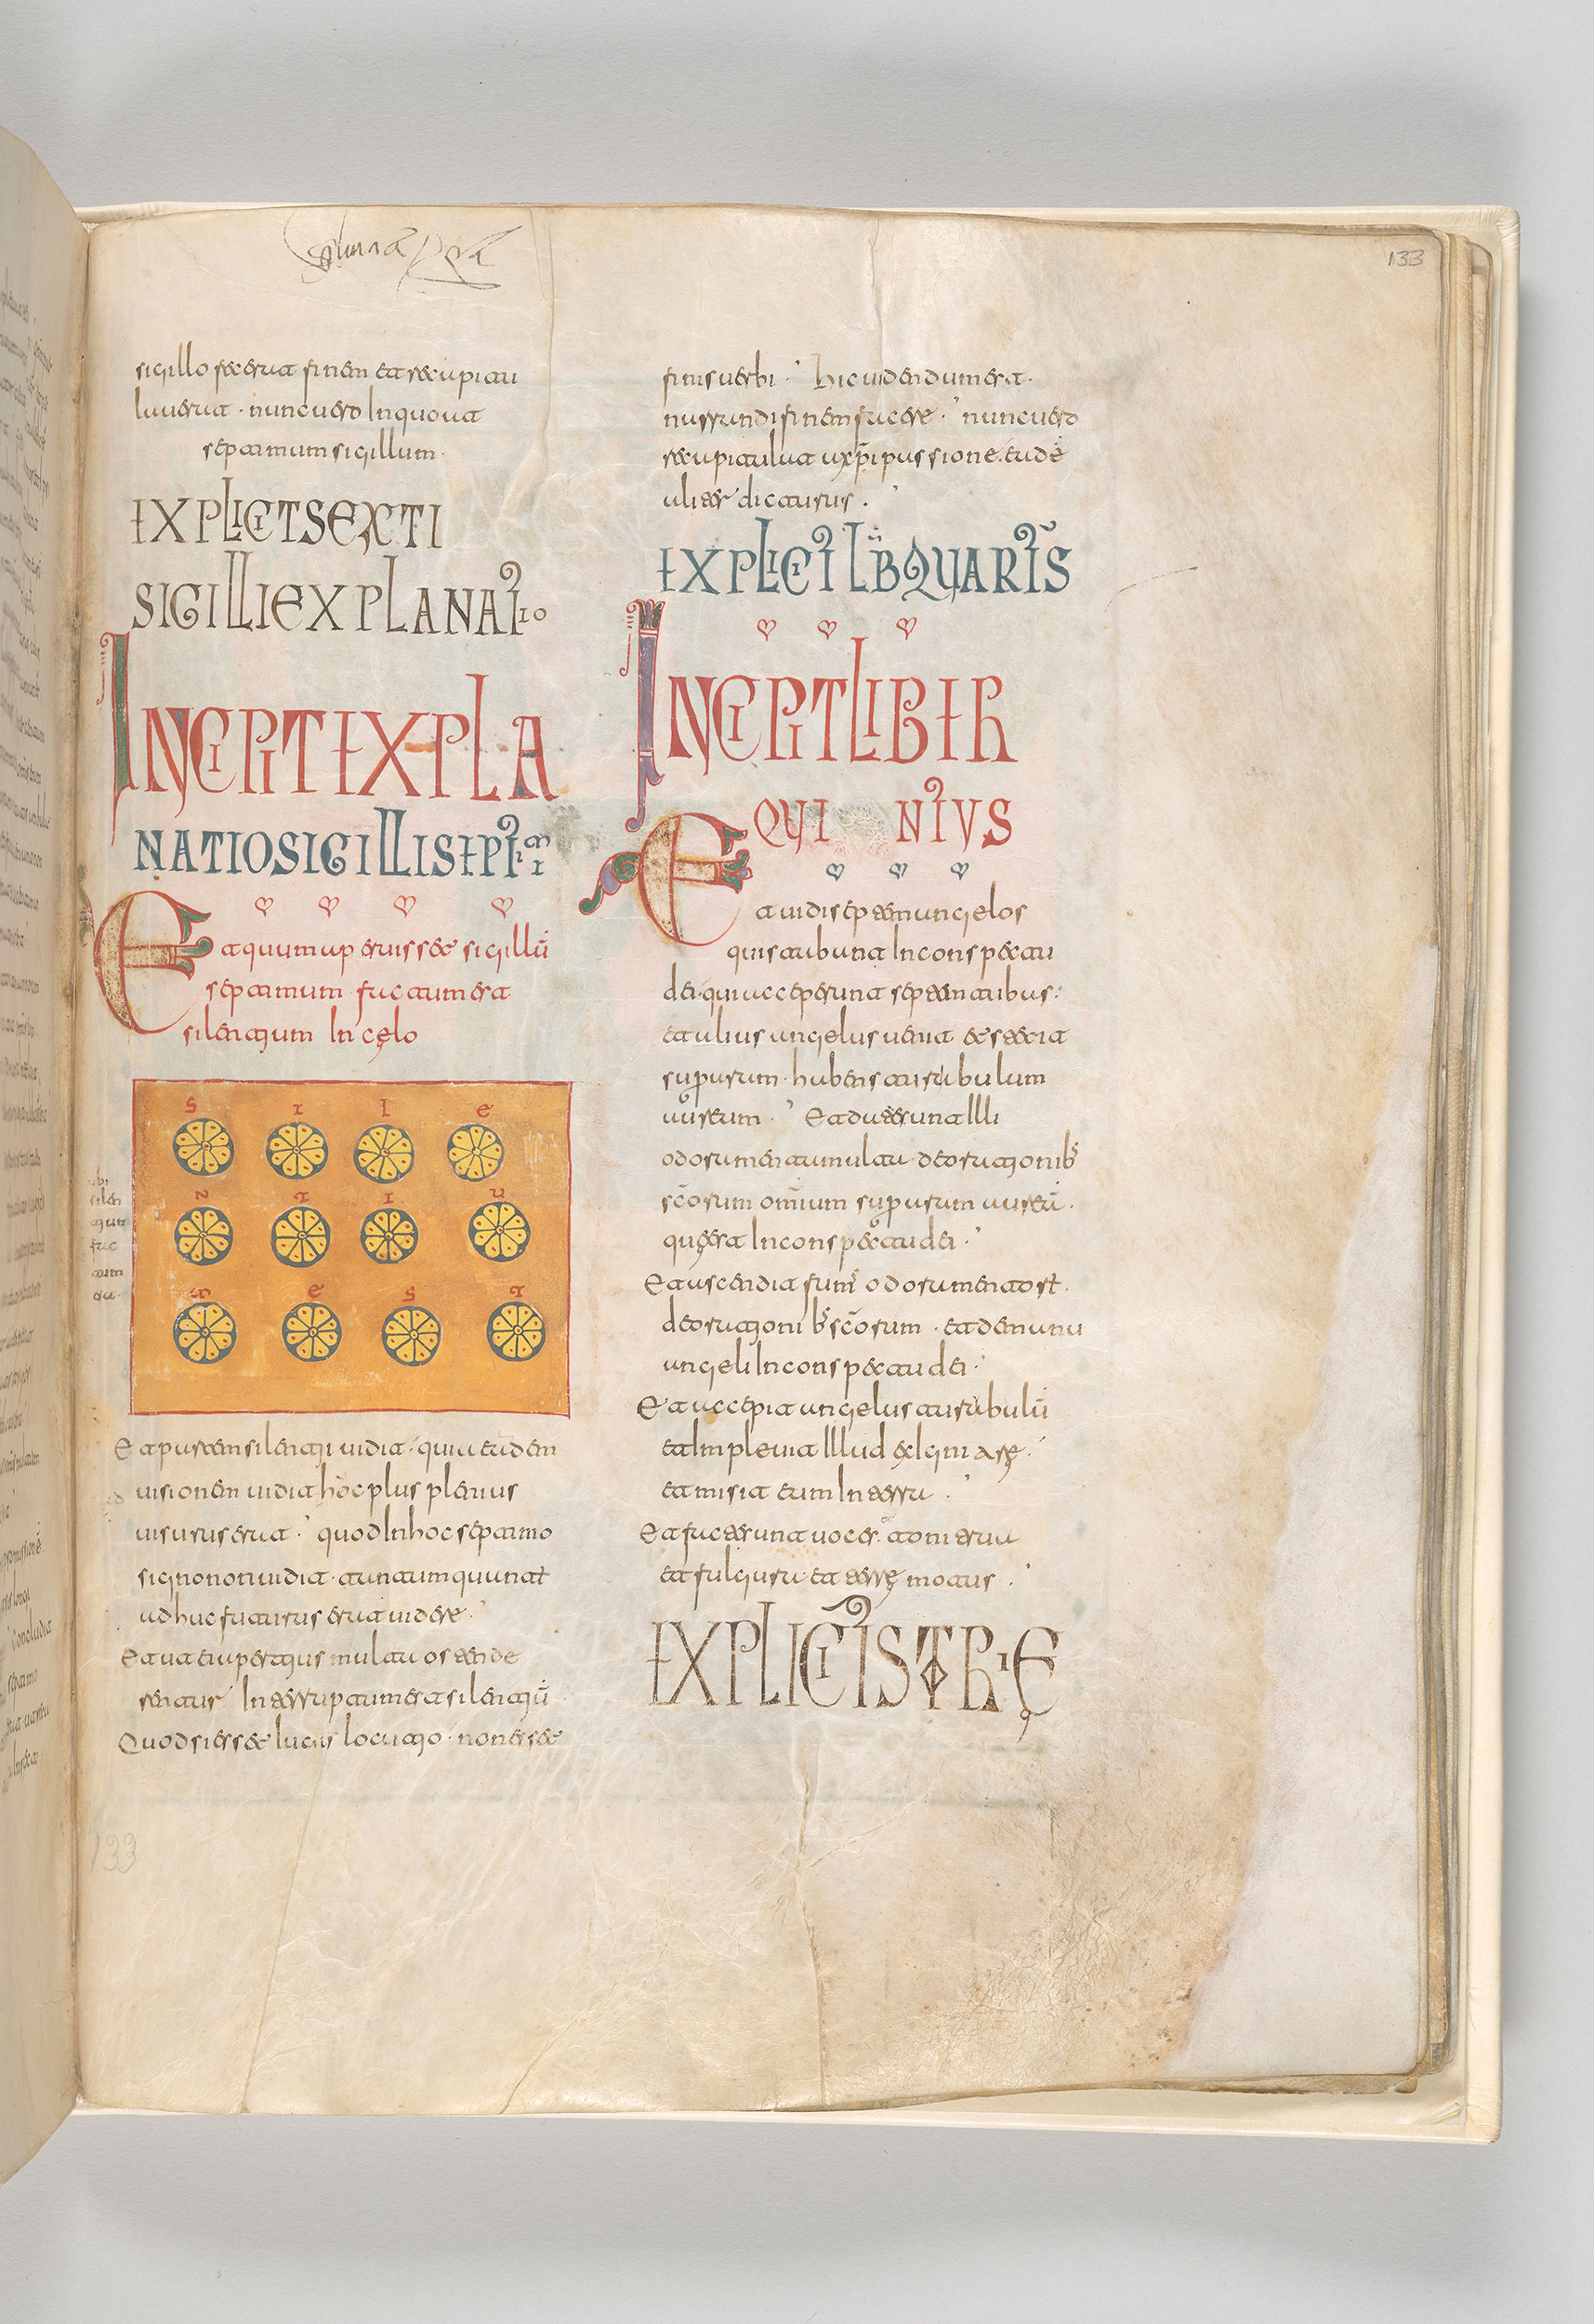 133
sigillo fecerat finem et recapitu
lauerat · nunc uero In quo at
septimum sigillum ·
EXPLICIT SEXTI
SIGILLI EXPLANATIO
INCIPIT EXPLA
NATIO SIGILLI SEPTIMI
Et quum aperuisset sigillū
septimum factum est
silentium In cęlo
S I L E
N T I U
M E S T
ubi
silen
tium
fac
tum
est
Et partem silentii uidit · qui eadem
uisionem uidit hoc plus plenius
uisurus erat · quod In hoc septimo
signo non uidit · tantum quantū
adhuc futurus erat uidere ·
multa ostende
rentur Interruptum est silentiū
Quod si esset locutio · non esset
finis uerbi · hic uidendum est ·
narrandi finem facere · nunc uero
recapitulat a xp̄i passione · eadē
aliter dicturus ·
EXPLICIT LB QUARTS
INCIPIT LIBER
QUINTUS
Et uidi septem angelos
qui stabunt In conspectu
dei · qui acceperunt septem tubas :
et alius angelus uenit et stetit
super aram · habens turabulum
aureum · Et date sunt Illi
odoramenta multa · de orationib
scōrum omīum super aram aureā ·
quę est In conspectu dei ·
Et ascendit fum odoramentorum
de orationib scōrum · et de manu
angeli In conspectu dei ·
Et accepit angelus turabulū
et Impleuit Illud ex Igni arę ·
et misit eum In terra ·
Et facte sunt uoces · tonitrua
et fulgura · et terrę motus ·
EXPLICIT STRIE
133